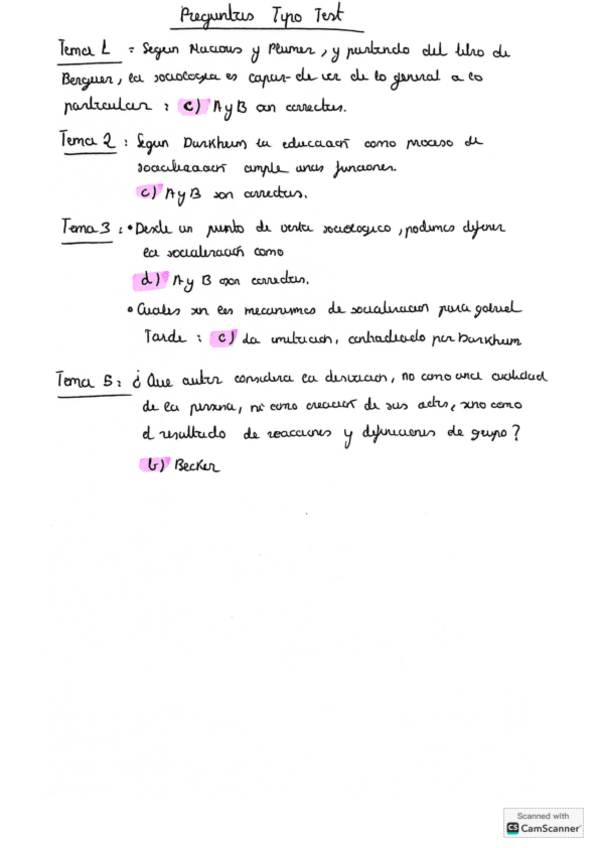 Preguntas Tipo Test
Tema 1 : Segun Macious y Plumer, y partiendo del libro de
Berguer, la sociología es capaz de ver de lo general a lo
particular : c) A y B son correctas.
Tema 2 : Segun Durkheim la educación como proceso de
socialización cumple unas funciones.
c) A y B son correctas.
Tema 3 : • Desde un punto de vista sociologico, podemos definir
la socialización como
d) A y B son correctas.
• Cuales son los mecanismos de socialización para gabriel
Tarde : c) La imitación, contradiciendo por Durkheim
Tema 5 : ¿ Que autor considera la desviación, no como una cualidad
de la persona, ni como creación de sus actos, sino como
el resultado de reacciones y definiciones de grupo ?
b) Becker
Scanned with
CS CamScanner